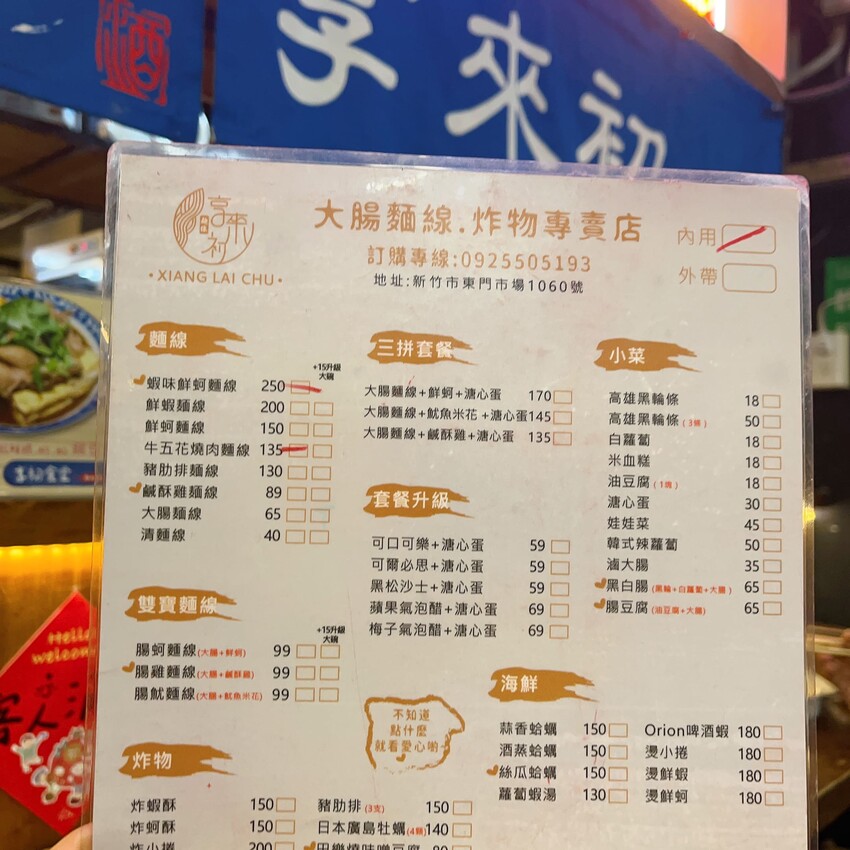 酒
享來初
享來初
•XIANG LAI CHU•
大腸麵線.炸物專賣店
訂購專線:0925505193
地址:新竹市東門市場1060號
內用
外帶
麵線
+15升級
大碗
蝦味鮮蚵麵線 250
鮮蝦麵線 200
鮮蚵麵線 150
牛五花燒肉麵線 135
豬肋排麵線 130
鹹酥雞麵線 89
大腸麵線 65
清麵線 40
雙寶麵線
+15升級
大碗
腸蚵麵線(大腸+鮮蚵) 99
腸雞麵線(大腸+鹹酥雞) 99
腸魷麵線(大腸+魷魚米花) 99
炸物
炸蝦酥 150
炸蚵酥 150
炸小捲 200
豬肋排(3支) 150
日本廣島牡蠣(4顆) 140
三拼套餐
大腸麵線+鮮蚵+溏心蛋 170
大腸麵線+魷魚米花+溏心蛋 145
大腸麵線+鹹酥雞+溏心蛋 135
套餐升級
可口可樂+溏心蛋 59
可爾必思+溏心蛋 59
黑松沙士+溏心蛋 59
蘋果氣泡醋+溏心蛋 69
梅子氣泡醋+溏心蛋 69
不知道
點什麼
就看愛心喲~
小菜
高雄黑輪條 18
高雄黑輪條(3條) 50
白蘿蔔 18
米血糕 18
油豆腐(1塊) 18
溏心蛋 30
娃娃菜 45
韓式辣蘿蔔 50
滷大腸 35
黑白腸(黑輪+白蘿蔔+大腸) 65
腸豆腐(油豆腐+大腸) 65
海鮮
蒜香蛤蠣 150
酒蒸蛤蠣 150
絲瓜蛤蠣 150
蘿蔔蝦湯 130
Orion啤酒蝦 180
燙小捲 180
燙鮮蝦 180
燙鮮蚵 180
Hello
welcom